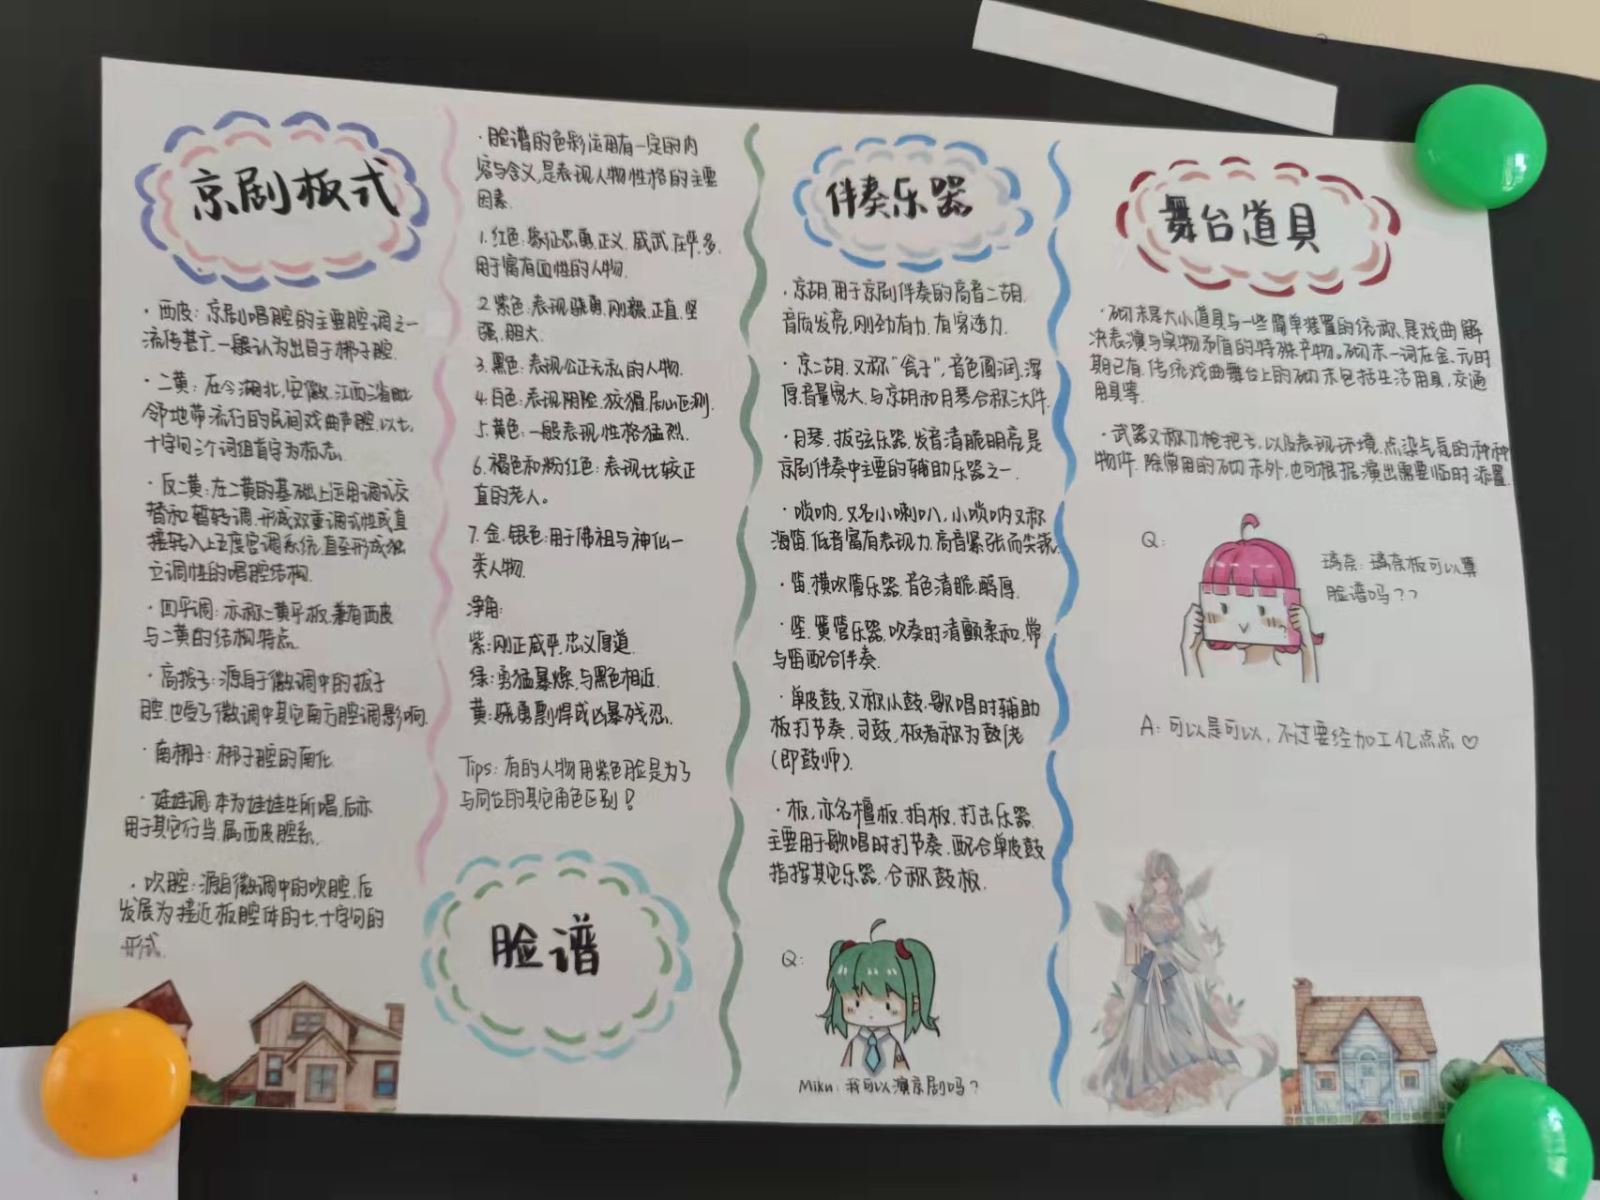 京剧板式
·西皮:京剧唱腔的主要腔调之一
流传甚广,一般认为出自于梆子腔.
·二黄:在今湖北,安徽,江西三省毗
邻地带流行的民间戏曲声腔,以七,
十字句三个词组首字为标志.
·反二黄:在二黄的基础上运用调式交
替和暂转调,形成双重调式性或直
接转入上五度宫调系统,直至形成独
立调性的唱腔结构.
·四平调:亦称二黄平板,兼有西皮
与二黄的结构特点.
·高拨子:源自于徽调中的拨子
腔,也受了徽调中其它南方腔调影响.
·南梆子:梆子腔的南化.
·娃娃调:本为娃娃生所唱,后亦
用于其它行当,属西皮腔系.
·吹腔:源自徽调中的吹腔,后
发展为接近板腔体的七,十字句的
形式.
·脸谱的色彩运用有一定的内
容与含义,是表现人物性格的主要
因素.
1.红色:象征忠勇,正义,威武,庄严,多
用于富有血性的人物.
2.紫色:表现骁勇,刚毅,正直,坚
强,胆大.
3.黑色:表现公正无私的人物.
4.白色:表现阴险,狡猾,居心叵测.
5.黄色:一般表现性格猛烈.
6.褐色和粉红色:表现比较正
直的老人。
7.金,银色:用于佛祖与神仙一
类人物.
净角:
紫:刚正威严,忠义厚道.
绿:勇猛暴燥,与黑色相近.
黄:骁勇剽悍或凶暴残忍.
Tips:有的人物用紫色脸是为了
与同台的其它角色区别!
脸谱
伴奏乐器
·京胡,用于京剧伴奏的高音二胡.
音质发亮,刚劲有力,有穿透力.
·京二胡,又称“瓮子”,音色圆润,深
厚,音量宽大,与京胡和月琴合称三大件.
·月琴,拔弦乐器,发音清脆明亮是
京剧伴奏中主要的辅助乐器之一.
·唢呐,又名小喇叭,小唢呐又称
海笛,低音富有表现力,高音紧张而尖锐.
·笛,横吹管乐器,音色清脆,醇厚.
·笙,簧管乐器,吹奏时清颤柔和,常
与笛配合伴奏.
·单皮鼓,又称小鼓,歌唱时辅助
板打节奏,司鼓,板者称为鼓佬
(即鼓师).
·板,亦名檀板,拍板,打击乐器.
主要用于歌唱时打节奏,配合单皮鼓
指挥其它乐器,合称鼓板.
Q:
Miku:我可以演京剧吗?
舞台道具
·砌末是大小道具与一些简单装置的统称,是戏曲解
决表演与实物矛盾的特殊产物。砌末一词在金,元时
期已有,传统戏曲舞台上的砌末包括生活用具,交通
用具等.
·武器又称刀枪把子,以及表现环境,点染气氛的种种
物件.除常用的砌末外,也可根据演出需要临时添置.
Q:
璃奈:璃奈板可以算
脸谱吗??
A:可以是可以,不过要经加工亿点点♡